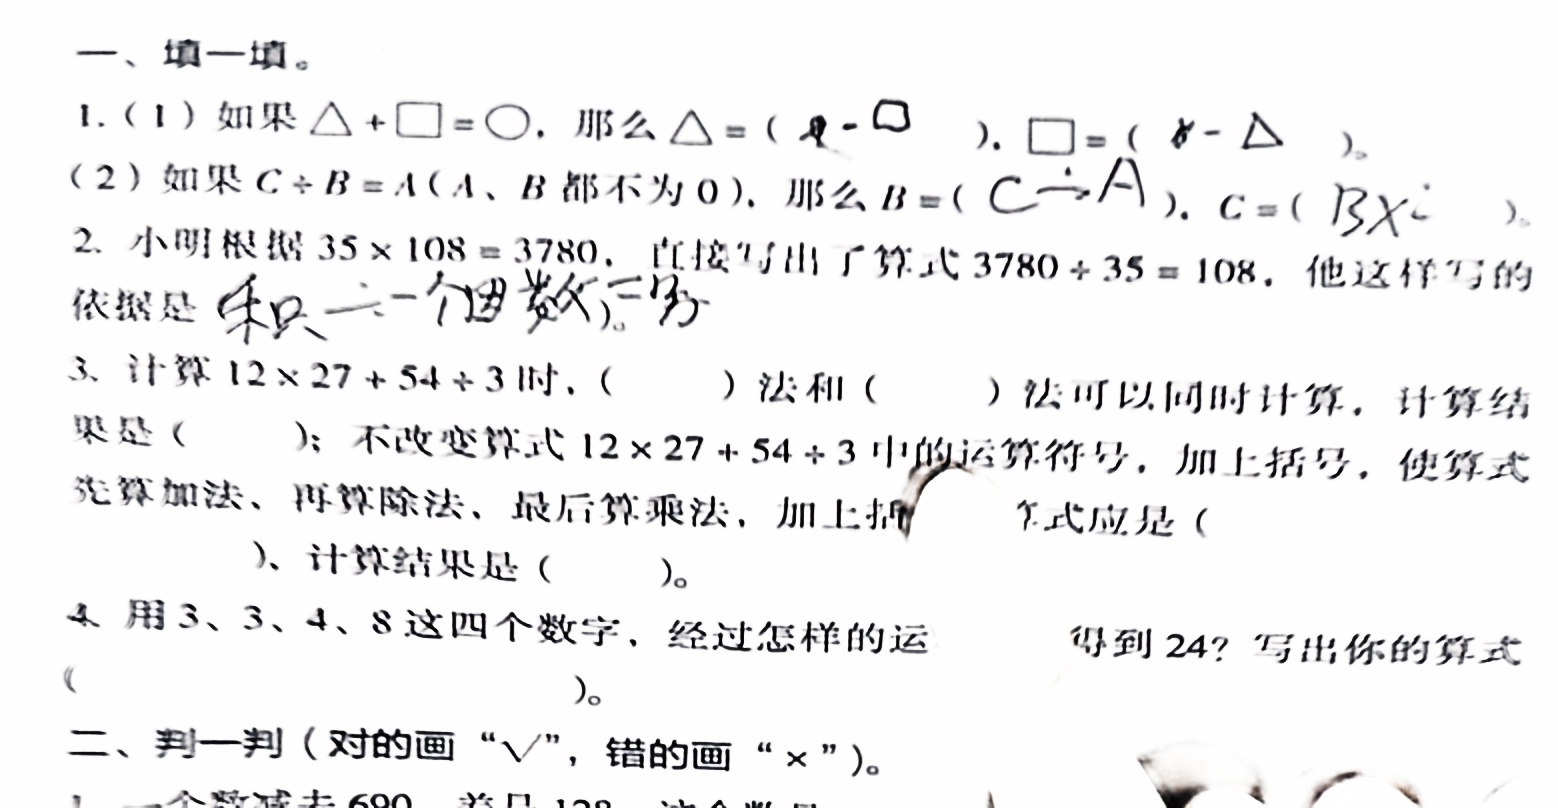 一、填一填。
1.（1）如果△+□=○，那么△=（ - □ ），□=（ - △ ）。
（2）如果C÷B=A（A、B都不为0），那么B=（ C÷A ），C=（ B× ）。
2. 小明根据35×108=3780，直接写出了算式3780÷35=108，他这样写的
依据是 积÷一个因数= ）。
3、计算12×27+54÷3时，（ ）法和（ ）法可以同时计算，计算结
果是（ ）；不改变算式12×27+54÷3中的运算符号，加上括号，使算式
先算加法、再算除法、最后算乘法，加上括 式应是（
）、计算结果是（ ）。
4、用3、3、4、8这四个数字，经过怎样的运 得到24？写出你的算式
（ ）。
二、判一判（对的画“√”，错的画“×”）。
1. 一个数减去690，差是128，这个数是